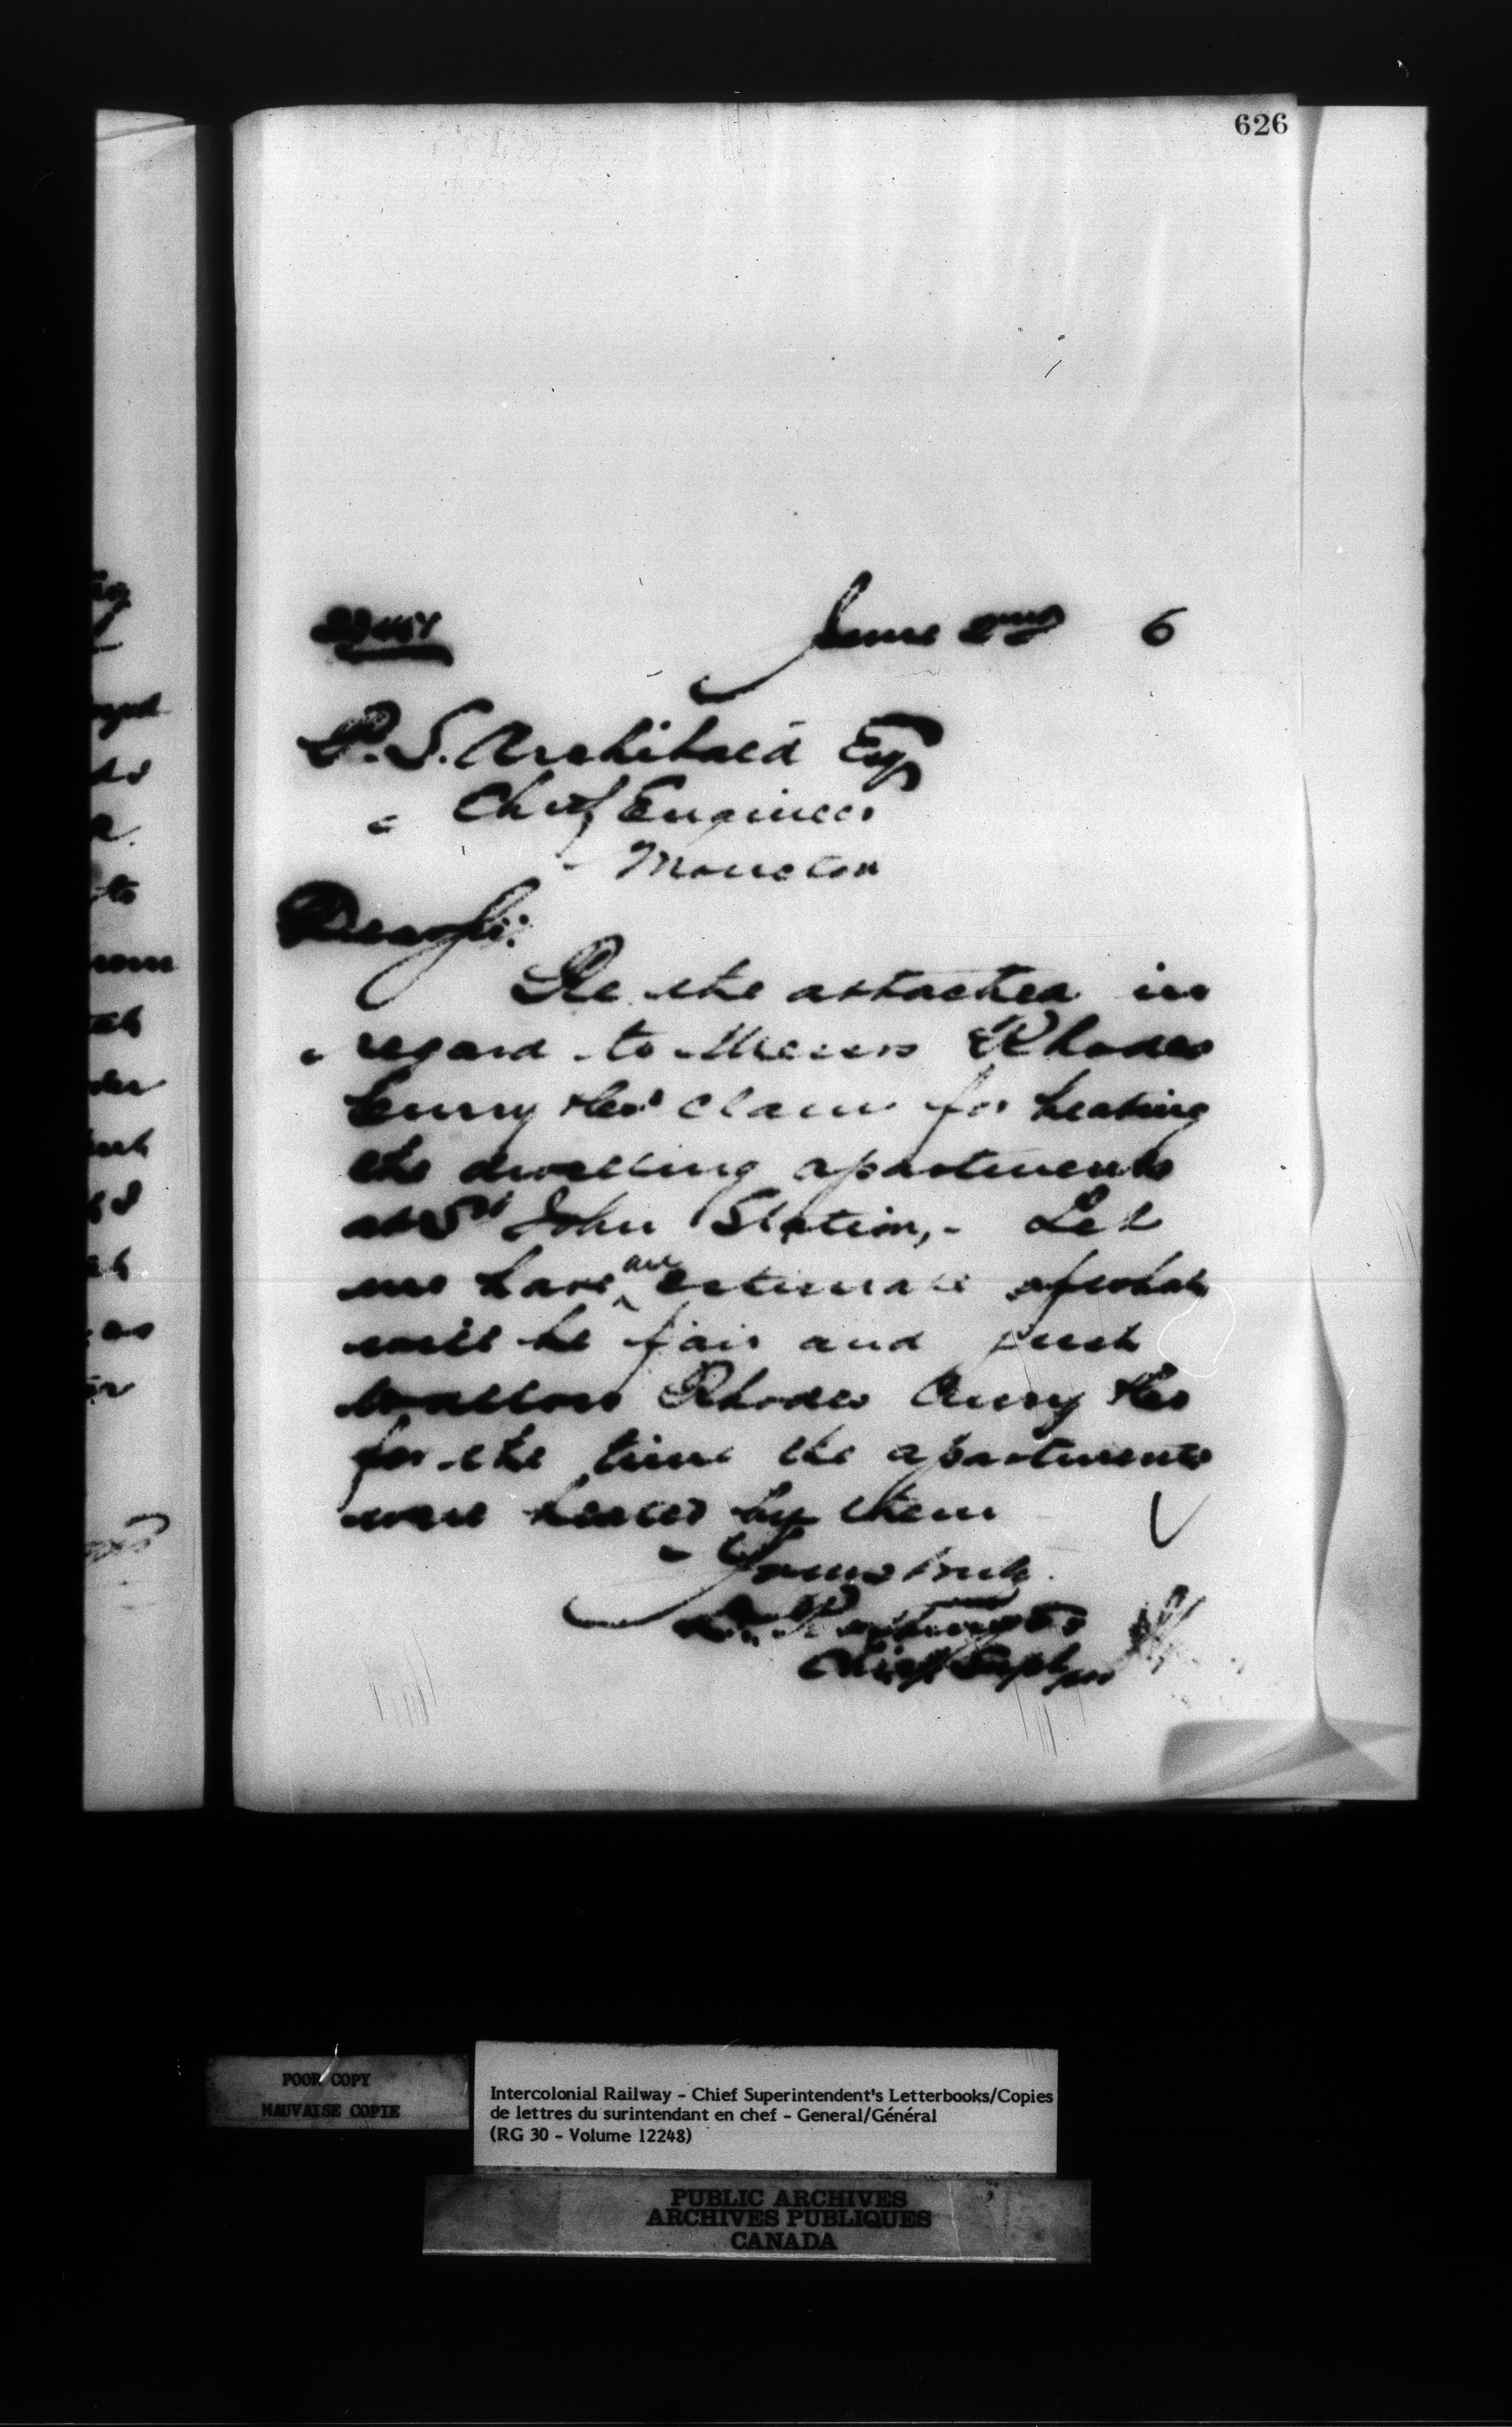 626
June 2nd 6
P. S. Archibald Esq
Chief Engineer
Moncton
Dear Sir:
Re the attached in
regard to Messrs Rhodes
Curry & Co's claim for heating
the dwelling apartments
at St John Station,- Let
me have an estimate of what
will be fair and just
to allow Rhodes Curry & Co
for the time the apartments
were heated by them
Yours truly
Chief Supt
POOR COPY
MAUVAISE COPIE
Intercolonial Railway - Chief Superintendent's Letterbooks/Copies
de lettres du surintendant en chef - General/Général
(RG 30 - Volume 12248)
PUBLIC ARCHIVES
ARCHIVES PUBLIQUES
CANADA